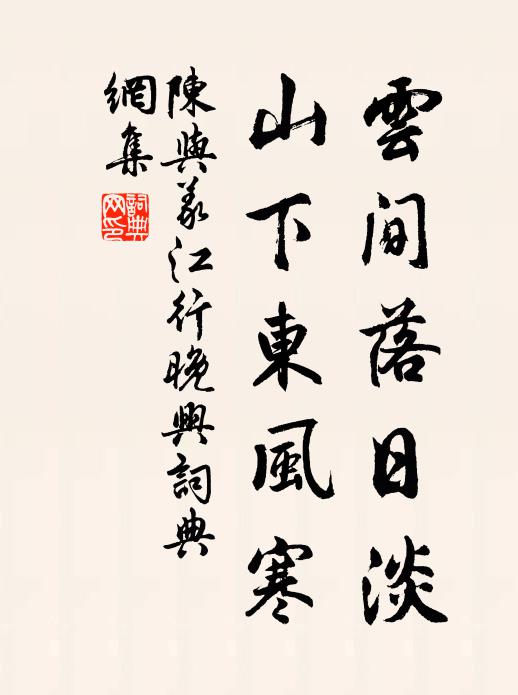 雲間落日淡
山下東風寒
陳與義江行晚興詞典
網集
詞典
网印